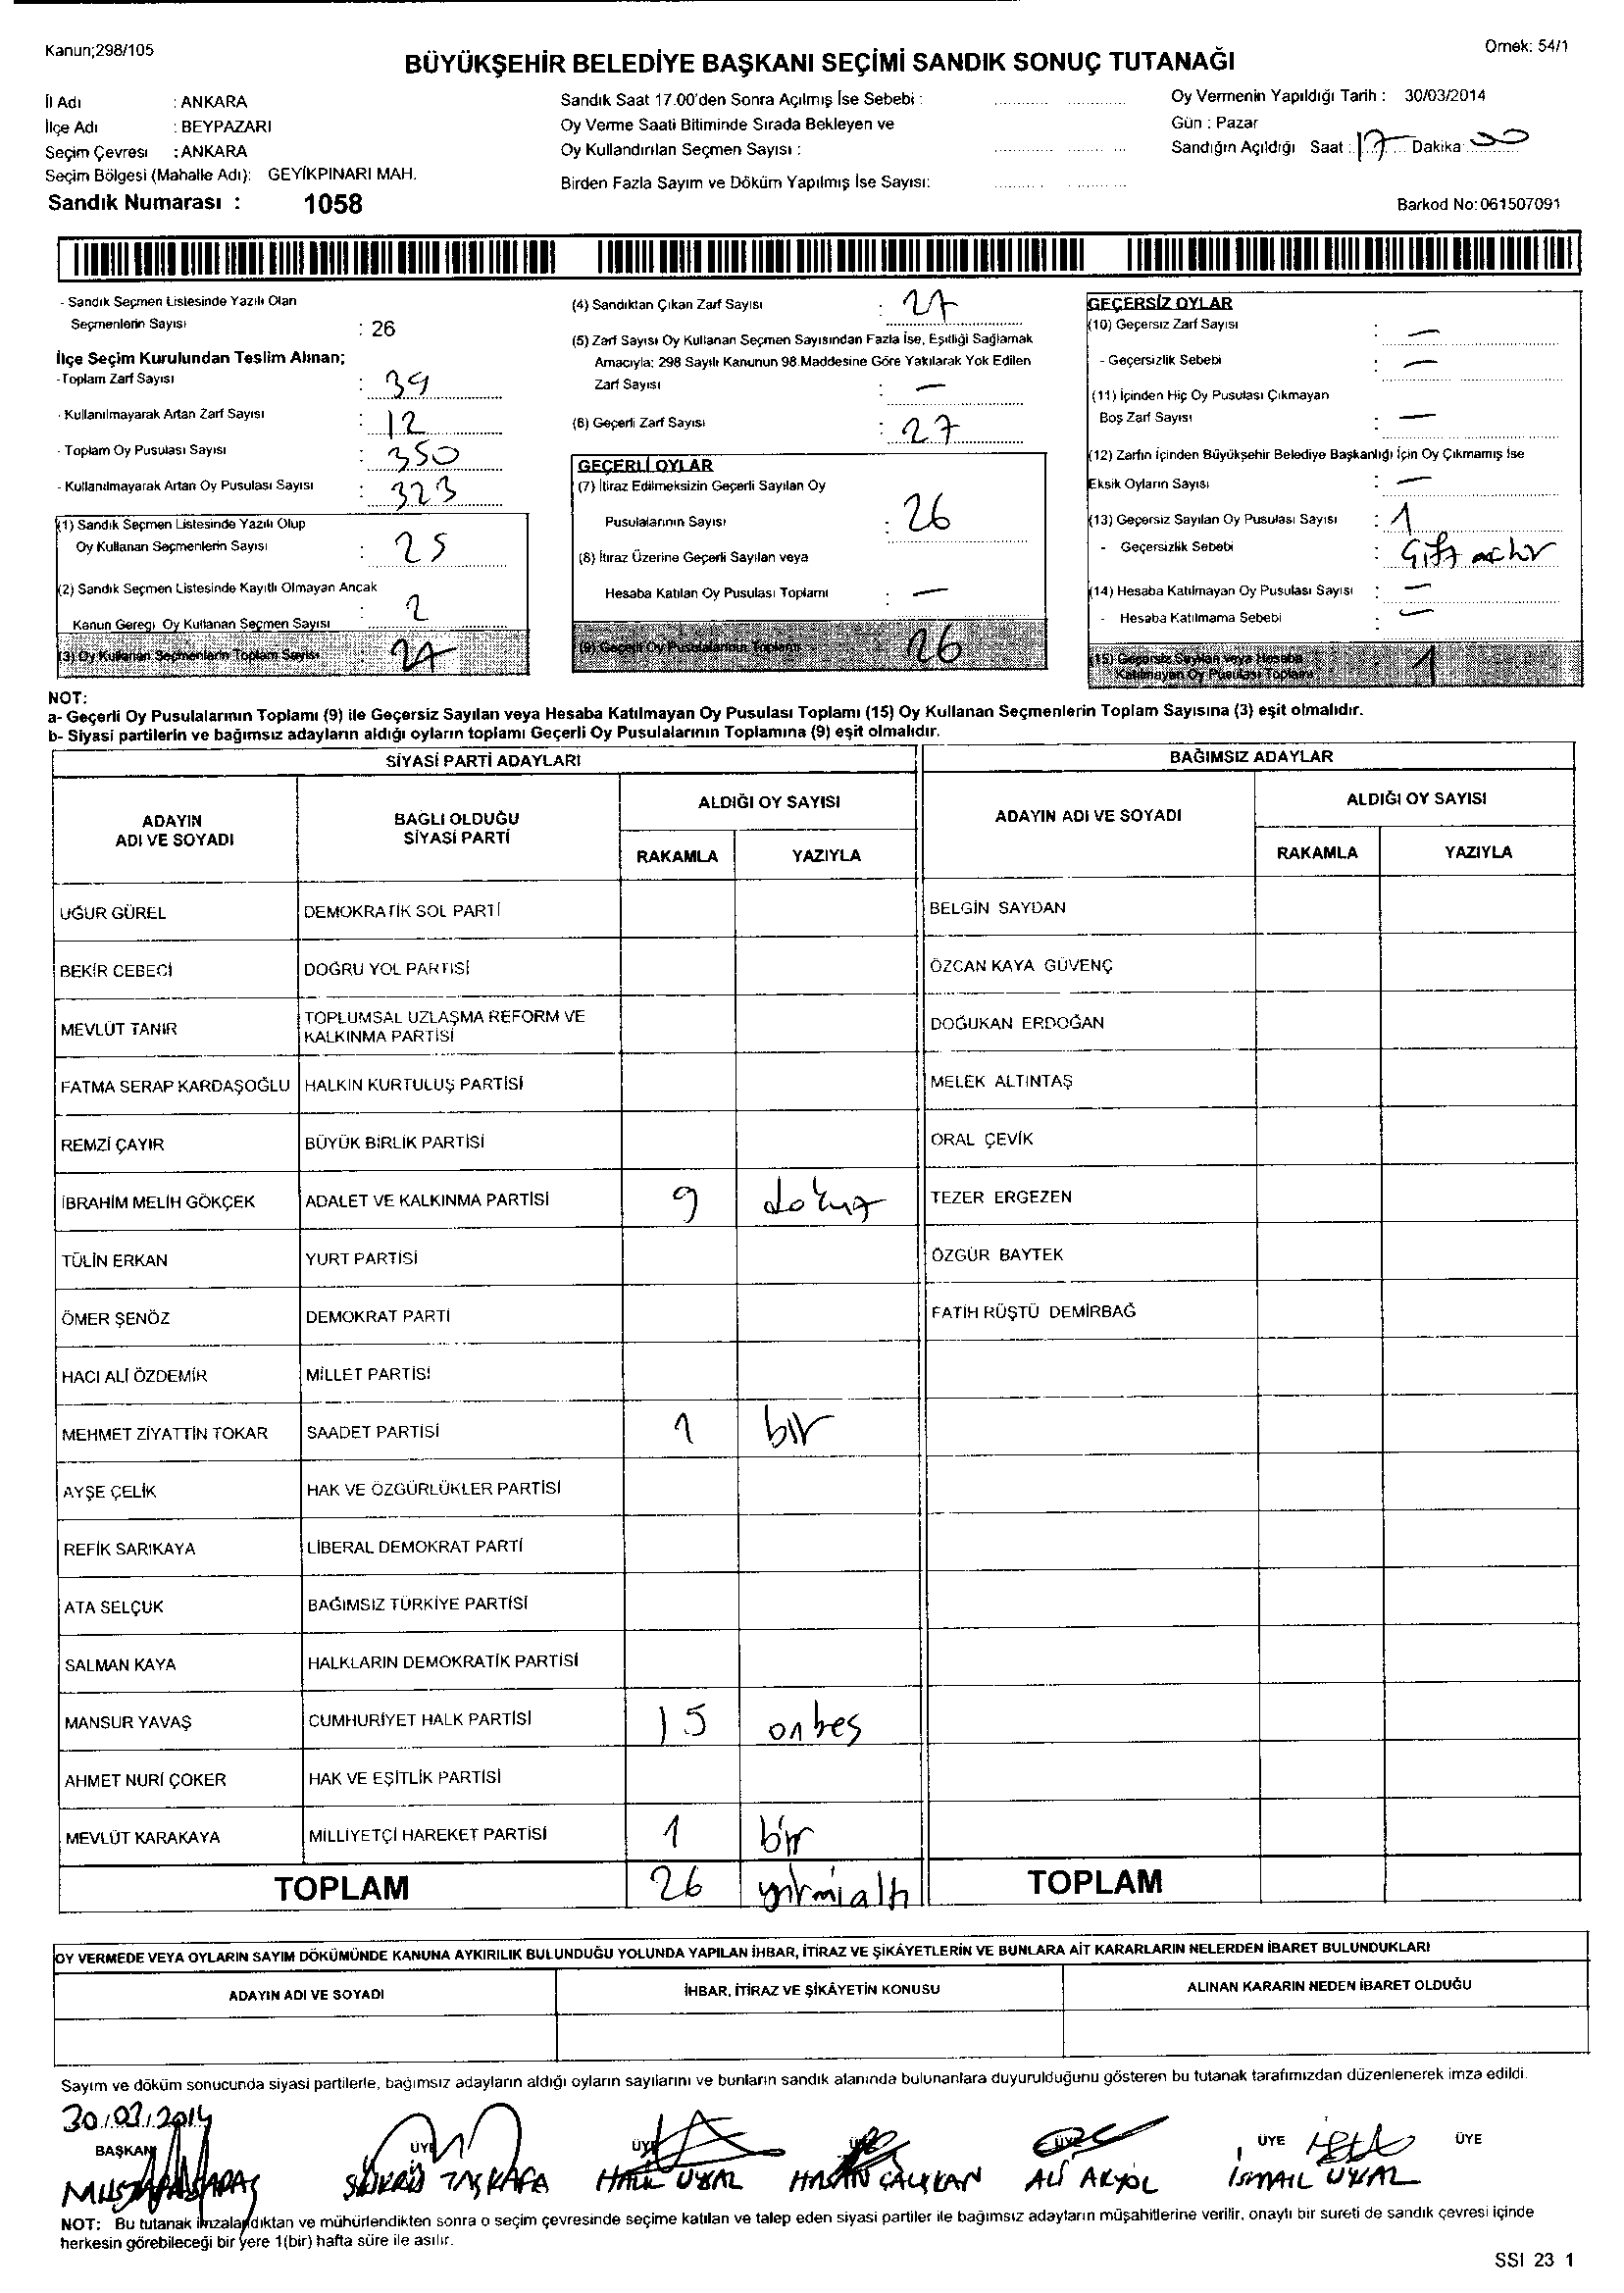 Kanun;298/105
Örnek: 54/1
BÜYÜKŞEHİR BELEDİYE BAŞKANI SEÇİMİ SANDIK SONUÇ TUTANAĞI
İl Adı : ANKARA
İlçe Adı : BEYPAZARI
Seçim Çevresi : ANKARA
Seçim Bölgesi (Mahalle Adı): GEYİKPINARI MAH.
Sandık Numarası : 1058
Sandık Saat 17.00'den Sonra Açılmış İse Sebebi :
Oy Verme Saati Bitiminde Sırada Bekleyen ve
Oy Kullandırılan Seçmen Sayısı :
Birden Fazla Sayım ve Döküm Yapılmış İse Sayısı:
Oy Vermenin Yapıldığı Tarih : 30/03/2014
Gün : Pazar
Sandığın Açıldığı Saat : 17 Dakika: 00
Barkod No:061507091
- Sandık Seçmen Listesinde Yazılı Olan
Seçmenlerin Sayısı : 26
İlçe Seçim Kurulundan Teslim Alınan;
- Toplam Zarf Sayısı : 39
- Kullanılmayarak Artan Zarf Sayısı : 12
- Toplam Oy Pusulası Sayısı : 350
- Kullanılmayarak Artan Oy Pusulası Sayısı : 323
(1) Sandık Seçmen Listesinde Yazılı Olup
Oy Kullanan Seçmenlerin Sayısı : 25
(2) Sandık Seçmen Listesinde Kayıtlı Olmayan Ancak
Kanun Gereği Oy Kullanan Seçmen Sayısı : 2
(3) Oy Kullanan Seçmenlerin Toplam Sayısı : 27
(4) Sandıktan Çıkan Zarf Sayısı : 27
(5) Zarf Sayısı Oy Kullanan Seçmen Sayısından Fazla İse, Eşitliği Sağlamak
Amacıyla: 298 Sayılı Kanunun 98.Maddesine Göre Yakılarak Yok Edilen
Zarf Sayısı : —
(6) Geçerli Zarf Sayısı : 27
GEÇERLİ OYLAR
(7) İtiraz Edilmeksizin Geçerli Sayılan Oy
Pusulalarının Sayısı : 26
(8) İtiraz Üzerine Geçerli Sayılan veya
Hesaba Katılan Oy Pusulası Toplamı : —
(9) Geçerli Oy Pusulalarının Toplamı 26
GEÇERSİZ OYLAR
(10) Geçersiz Zarf Sayısı : —
- Geçersizlik Sebebi : —
(11) İçinden Hiç Oy Pusulası Çıkmayan
Boş Zarf Sayısı : —
(12) Zarfın İçinden Büyükşehir Belediye Başkanlığı İçin Oy Çıkmamış İse
Eksik Oyların Sayısı : —
(13) Geçersiz Sayılan Oy Pusulası Sayısı : 1
- Geçersizlik Sebebi :
(14) Hesaba Katılmayan Oy Pusulası Sayısı : —
- Hesaba Katılmama Sebebi : —
(15) Geçersiz Sayılan veya Hesaba
Katılmayan Oy Pusulası Toplamı 1
NOT:
a- Geçerli Oy Pusulalarının Toplamı (9) ile Geçersiz Sayılan veya Hesaba Katılmayan Oy Pusulası Toplamı (15) Oy Kullanan Seçmenlerin Toplam Sayısına (3) eşit olmalıdır.
b- Siyasi partilerin ve bağımsız adayların aldığı oyların toplamı Geçerli Oy Pusulalarının Toplamına (9) eşit olmalıdır.
SİYASİ PARTİ ADAYLARI
ADAYIN
ADI VE SOYADI
BAĞLI OLDUĞU
SİYASİ PARTİ
ALDIĞI OY SAYISI
RAKAMLA YAZIYLA
UĞUR GÜREL DEMOKRATİK SOL PARTİ
BEKİR CEBECİ DOĞRU YOL PARTİSİ
MEVLÜT TANIR TOPLUMSAL UZLAŞMA REFORM VE
KALKINMA PARTİSİ
FATMA SERAP KARDAŞOĞLU HALKIN KURTULUŞ PARTİSİ
REMZİ ÇAYIR BÜYÜK BİRLİK PARTİSİ
İBRAHİM MELİH GÖKÇEK ADALET VE KALKINMA PARTİSİ 9 dokuz
TÜLİN ERKAN YURT PARTİSİ
ÖMER ŞENÖZ DEMOKRAT PARTİ
HACI ALİ ÖZDEMİR MİLLET PARTİSİ
MEHMET ZİYATTİN TOKAR SAADET PARTİSİ 1 bir
AYŞE ÇELİK HAK VE ÖZGÜRLÜKLER PARTİSİ
REFİK SARIKAYA LİBERAL DEMOKRAT PARTİ
ATA SELÇUK BAĞIMSIZ TÜRKİYE PARTİSİ
SALMAN KAYA HALKLARIN DEMOKRATİK PARTİSİ
MANSUR YAVAŞ CUMHURİYET HALK PARTİSİ 15 onbeş
AHMET NURİ ÇOKER HAK VE EŞİTLİK PARTİSİ
MEVLÜT KARAKAYA MİLLİYETÇİ HAREKET PARTİSİ 1 bir
TOPLAM 26 yirmialtı
BAĞIMSIZ ADAYLAR
ADAYIN ADI VE SOYADI
ALDIĞI OY SAYISI
RAKAMLA YAZIYLA
BELGİN SAYDAN
ÖZCAN KAYA GÜVENÇ
DOĞUKAN ERDOĞAN
MELEK ALTINTAŞ
ORAL ÇEVİK
TEZER ERGEZEN
ÖZGÜR BAYTEK
FATİH RÜŞTÜ DEMİRBAĞ
TOPLAM
OY VERMEDE VEYA OYLARIN SAYIM DÖKÜMÜNDE KANUNA AYKIRILIK BULUNDUĞU YOLUNDA YAPILAN İHBAR, İTİRAZ VE ŞİKÂYETLERİN VE BUNLARA AİT KARARLARIN NELERDEN İBARET BULUNDUKLARI
ADAYIN ADI VE SOYADI İHBAR, İTİRAZ VE ŞİKÂYETİN KONUSU ALINAN KARARIN NEDEN İBARET OLDUĞU
Sayım ve döküm sonucunda siyasi partilerle, bağımsız adayların aldığı oyların sayılarını ve bunların sandık alanında bulunanlara duyurulduğunu gösteren bu tutanak tarafımızdan düzenlenerek imza edildi.
30.03.2014
BAŞKAN ÜYE ÜYE ÜYE ÜYE ÜYE ÜYE
ŞÜKRÜ TAŞKAFA HALİL UYSAL HASAN ÇALIŞKAN ALİ AKYOL İSMAİL UYSAL
NOT: Bu tutanak imzalandıktan ve mühürlendikten sonra o seçim çevresinde seçime katılan ve talep eden siyasi partiler ile bağımsız adayların müşahitlerine verilir, onaylı bir sureti de sandık çevresi içinde
herkesin görebileceği bir yere 1(bir) hafta süre ile asılır.
SSI 23 1